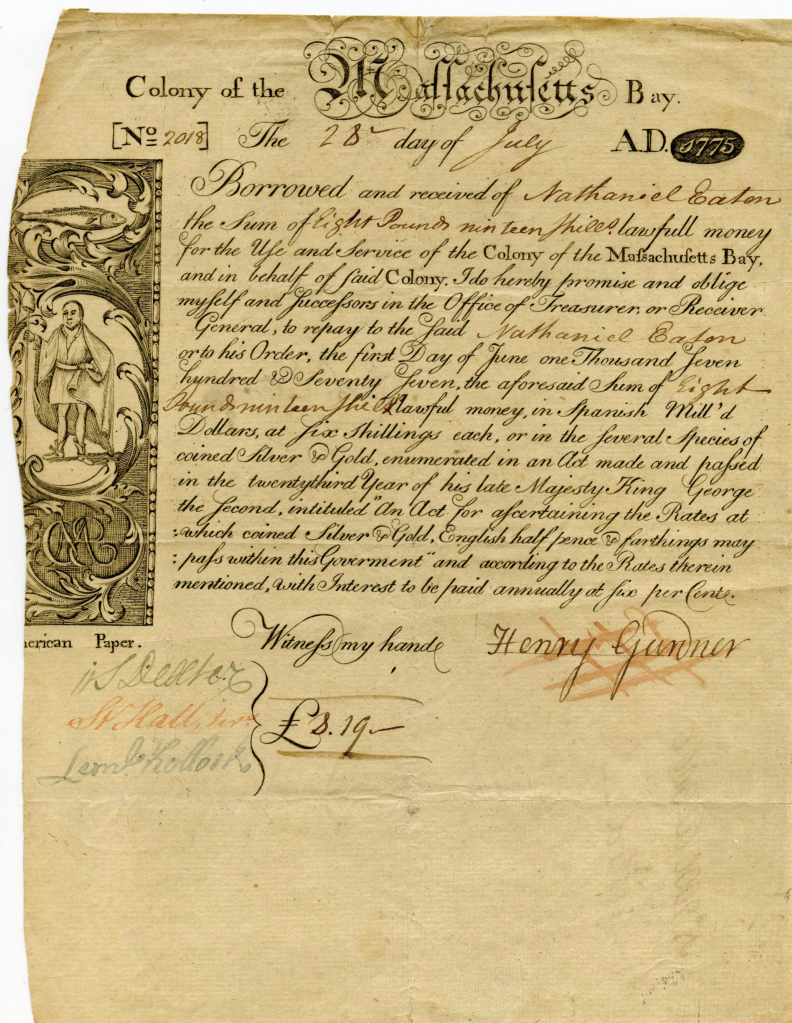 Colony of the Maſſachuſetts Bay.
[No 2018] The 28 day of July A.D. 1775
Borrowed and received of Nathaniel Eaton
the Sum of Eight Pounds ninteen ſhills. lawfull money
for the Uſe and Service of the Colony of the Maſsachuſetts Bay,
and in behalf of ſaid Colony, I do hereby promise and oblige
myſelf and Succeſsors in the Office of Treasurer, or Receiver
General, to repay to the ſaid Nathaniel Eaton
or to his Order, the first Day of June one Thousand ſeven
hundred & Seventy ſeven, the aforesaid Sum of Eight
Pounds ninteen ſhills lawful money, in Spanish Mill'd
Dollars, at ſix Shillings each, or in the ſeveral Species of
coined Silver & Gold, enumerated in an Act made and paſsed
in the twentythird Year of his late Majesty King George
the Second, intituled "An Act for aſcertaining the Rates at
:which coined Silver & Gold, English half pence & farthings may
:paſs within this Goverment" and according to the Rates therein
mentioned, with Interest to be paid annually at ſix per Cent.
erican Paper.
Witneſs my hand
Henry Gardner
S Dexter
£8.19